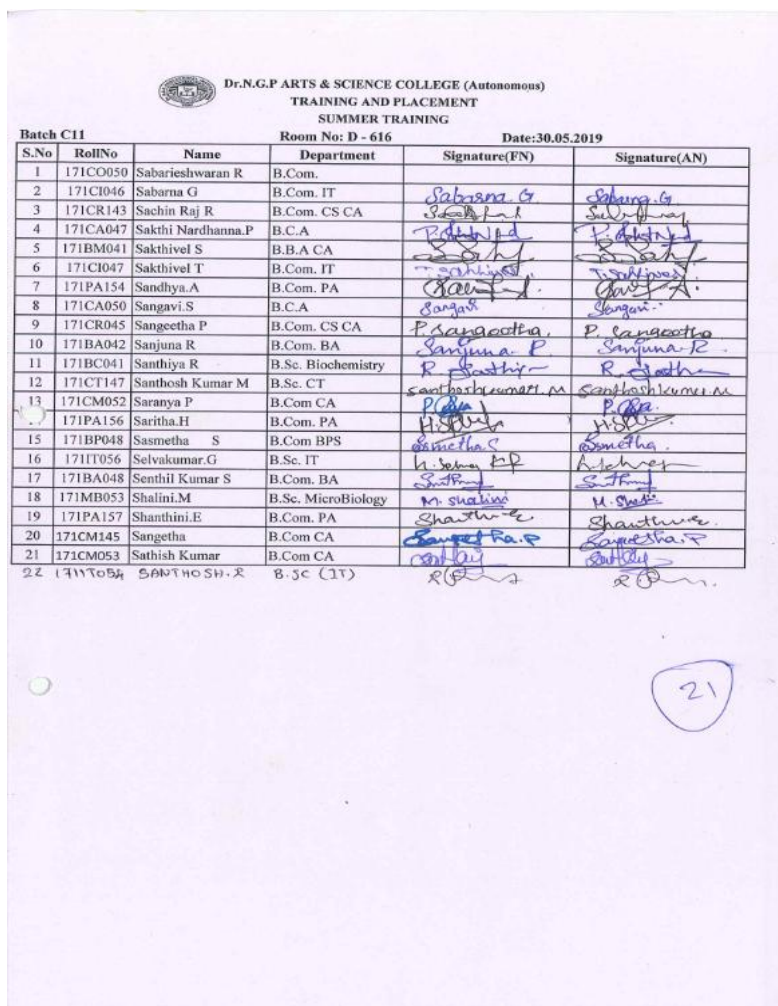 Dr.N.G.P ARTS & SCIENCE COLLEGE (Autonomous)
TRAINING AND PLACEMENT
SUMMER TRAINING
Batch C11 Room No: D - 616 Date:30.05.2019
S.No RollNo Name Department Signature(FN) Signature(AN)
1 171CO050 Sabarieshwaran R B.Com.
2 171CI046 Sabarna G B.Com. IT Sabarna. G Sabarna. G
3 171CR143 Sachin Raj R B.Com. CS CA
4 171CA047 Sakthi Nardhanna.P B.C.A
5 171BM041 Sakthivel S B.B.A CA
6 171CI047 Sakthivel T B.Com. IT
7 171PA154 Sandhya.A B.Com. PA
8 171CA050 Sangavi.S B.C.A
9 171CR045 Sangeetha P B.Com. CS CA P. Sangeetha. P. Sangeetha
10 171BA042 Sanjuna R B.Com. BA Sanjuna. R Sanjuna. R
11 171BC041 Santhiya R B.Sc. Biochemistry
12 171CT147 Santhosh Kumar M B.Sc. CT Santhoshkumar. M Santhoshkumar. M
13 171CM052 Saranya P B.Com CA
171PA156 Saritha.H B.Com. PA
15 171BP048 Sasmetha S B.Com BPS Sasmetha. S Sasmetha.
16 171IT056 Selvakumar.G B.Sc. IT
17 171BA048 Senthil Kumar S B.Com. BA
18 171MB053 Shalini.M B.Sc. MicroBiology M. Shalini M. Shalini
19 171PA157 Shanthini.E B.Com. PA
20 171CM145 Sangetha B.Com CA Sangeetha. P Sangeetha. P
21 171CM053 Sathish Kumar B.Com CA
22 171IT054 SANTHOSH.R B.SC (IT)
21